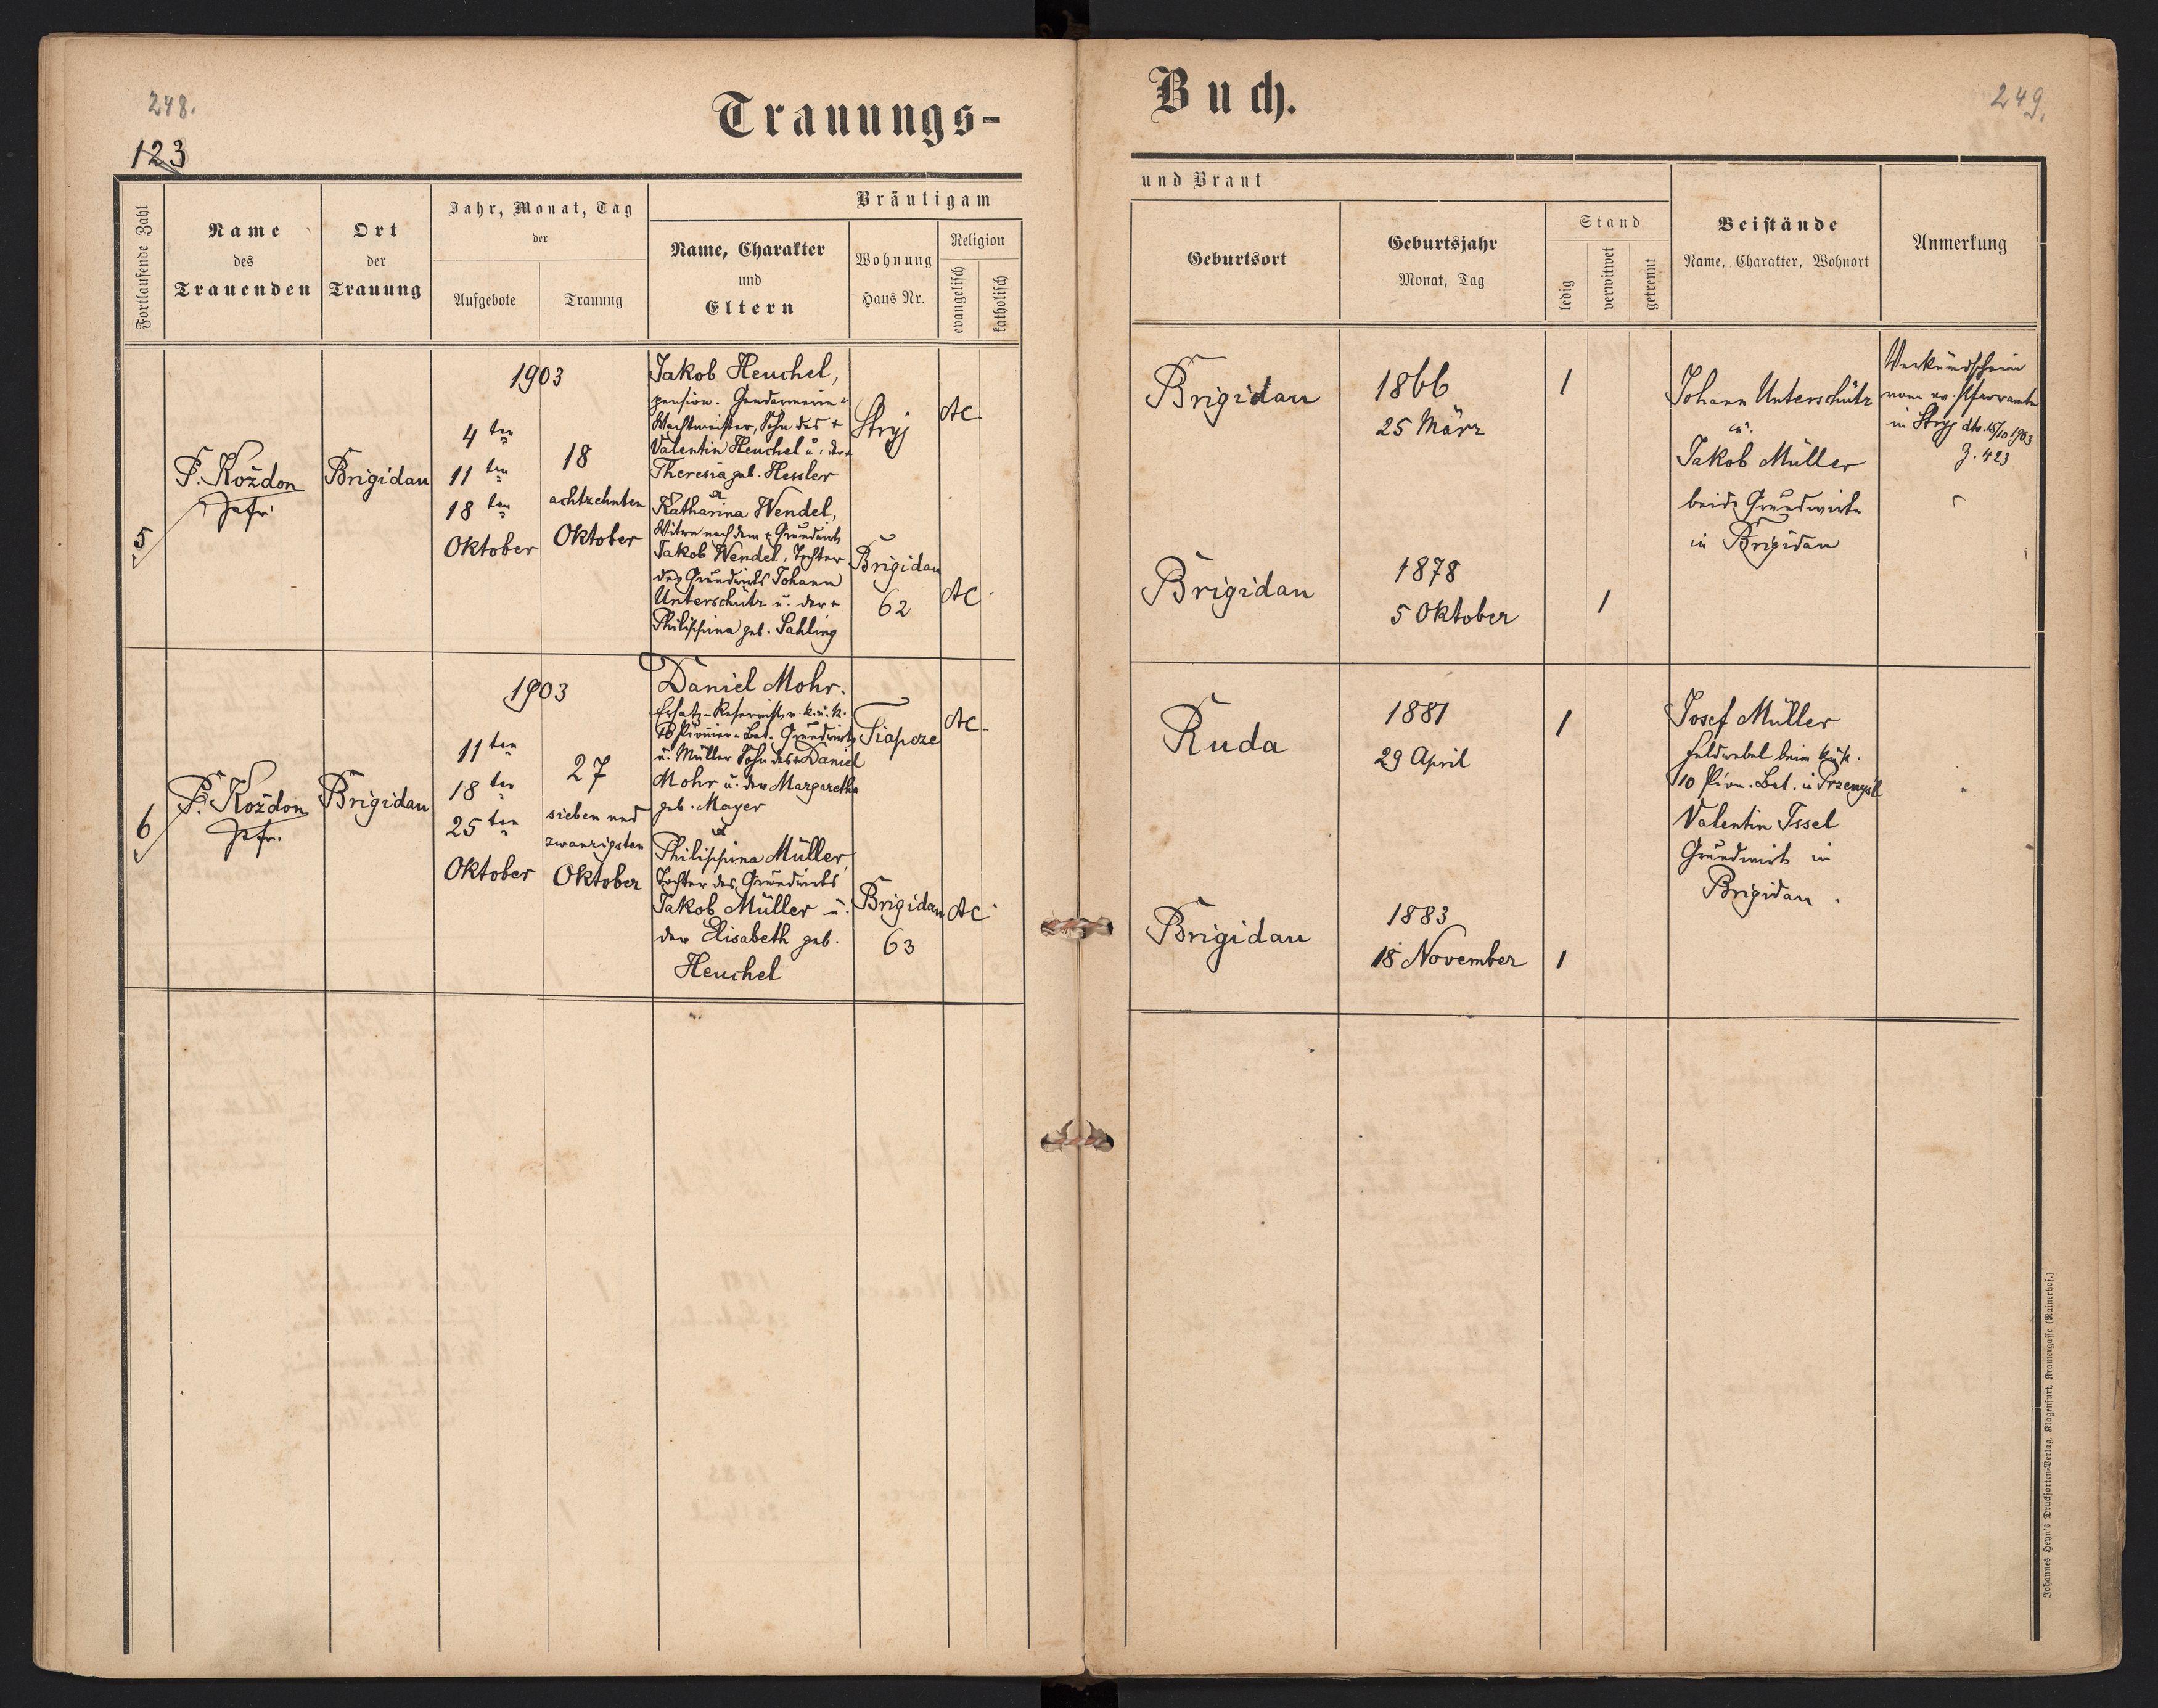 248.
123
Trauungs-
Fortlaufende Zahl
Name
des
Trauenden
Ort
der
Trauung
Jahr, Monat, Tag
der
Aufgebote
Trauung
Bräutigam
Name, Charakter
und
Eltern
Wohnung
Haus Nr.
Religion
evangelisch
katholisch
5
P. Kożdon
Pfr.
Brigidau
1903
4ten
11ten
18ten
Oktober
18
achtzehnten
Oktober
Jakob Heuchel,
pension. Gendarmerie-
Wachtmeister, Sohn des +
Valentin Heuchel u. der +
Theresia geb. Hessler
&
Katharina Wendel,
Witwe nach dem + Grundwirt
Jakob Wendel, Tochter
des Grundwirts Johann
Unterschütz u. der +
Philippina geb. Sahling
Stryj
Brigidau
62
AC
AC
6
P. Kożdon
Pfr.
Brigidau
1903
11ten
18ten
25ten
Oktober
27
sieben und
zwanzigsten
Oktober
Daniel Mohr.
Ersatz-Reservist v. k. u. k.
10 Pionnier-Bat. Grundwirt
u. Müller Sohn des + Daniel
Mohr u. der Margaretha
geb. Mayer
&
Philippina Müller,
Tochter des Grundwirts
Jakob Müller u.
der Elisabeth geb.
Heuchel
Tiapcze
Brigidau
63
AC
AC
Buch.
249.
und Braut
Geburtsort
Geburtsjahr
Monat, Tag
Stand
ledig
verwitwet
getrennt
Beistände
Name, Charakter, Wohnort
Anmerkung
Brigidau
1866
25 März
1
Brigidau
1878
5 Oktober
1
Johann Unterschütz
u.
Jakob Müller
beide Grundwirte
in Brigidau
Verkündschein
vom ev. Pfarramte
in Stryj dto 15/10 1903
Z. 423
Ruda
1881
29 April
1
Brigidau
1883
18 November
1
Josef Müller
Feldwebel beim k. u. k.
10 Pion. Bat. in Przemyśl
Valentin Issel
Grundwirt in
Brigidau.
Johannes Heyn's Drucksorten-Verlag, Klagenfurt, Kramergasse (Rainerhof.)